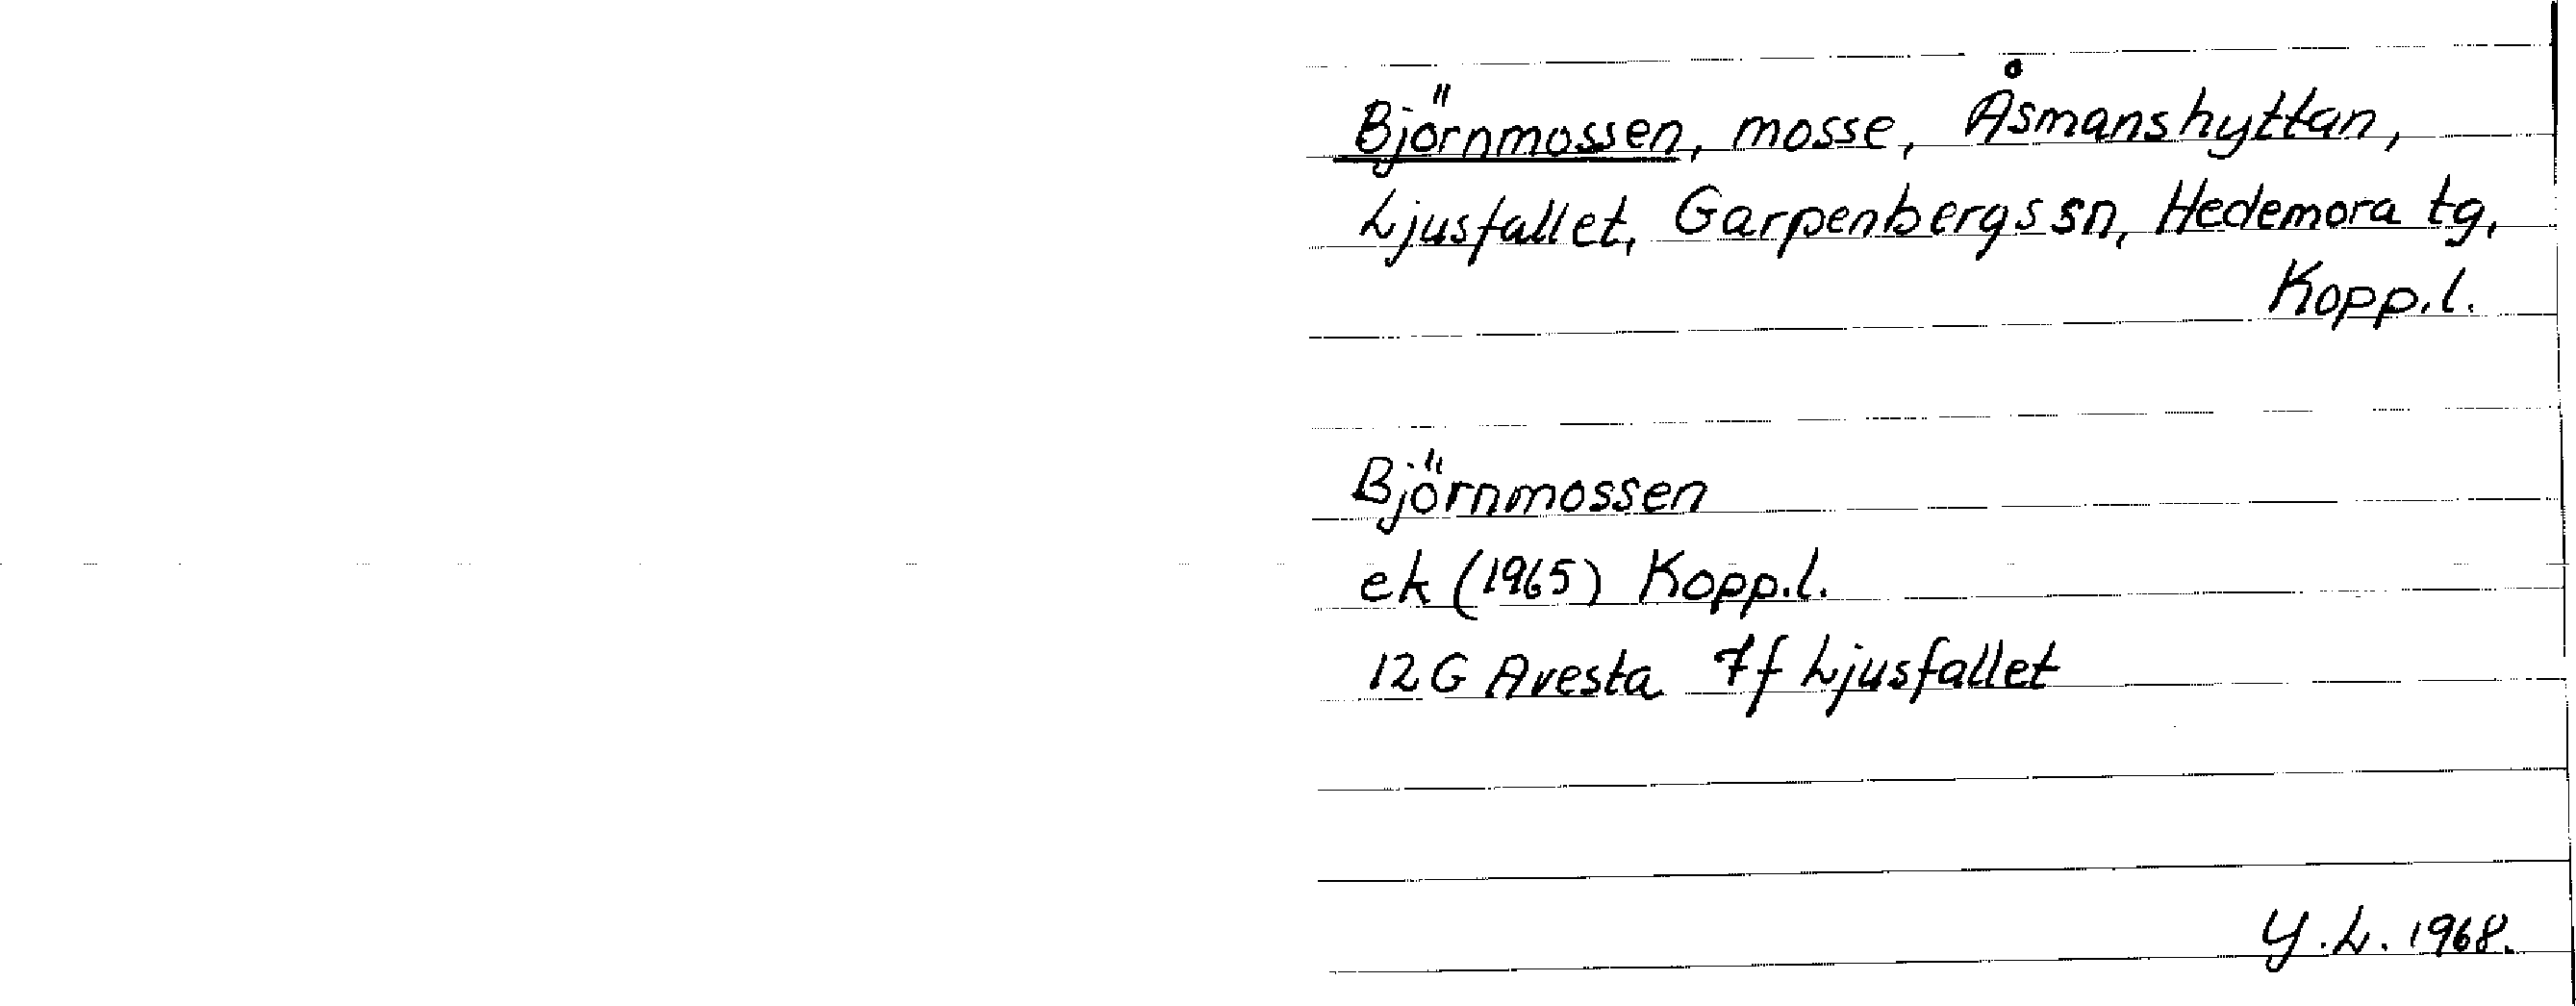 Björnmossen, mosse, Åsmanshyttan,
Ljusfallet, Garpenbergs sn, Hedemora tg,
Kopp.l.
Björnmossen
ek (1965) Kopp.l.
12G Avesta 7f Ljusfallet
Y.L. 1968.